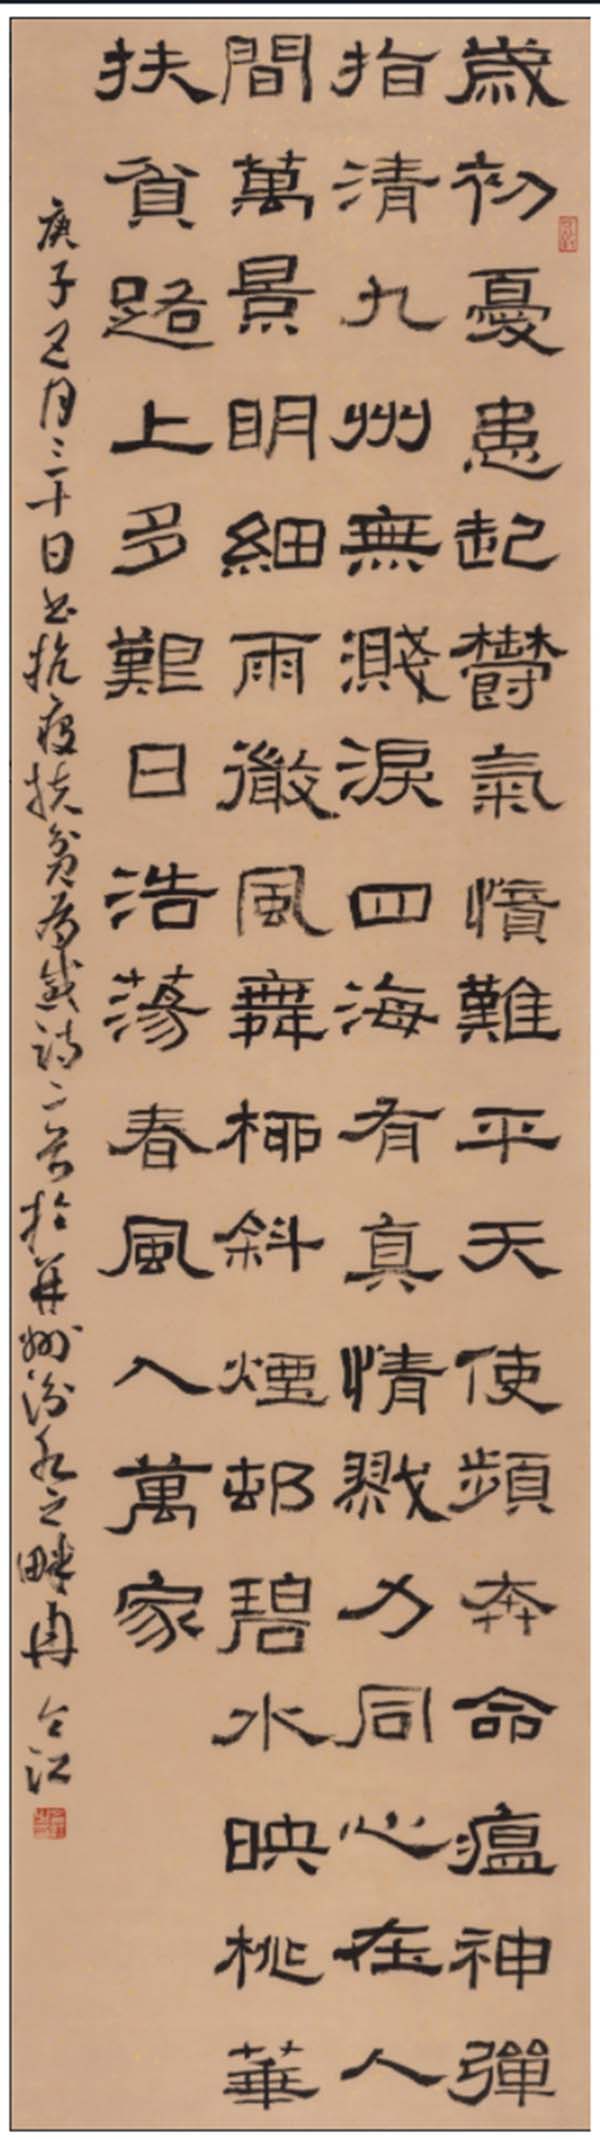 歲初憂患起鬱氣憤難平天使頻奔命瘟神彈
指清九州無濺淚四海有真情戮力同心在人
間萬景明細雨徹風舞柳斜煙邨碧水映桃華
扶貧路上多艱日浩蕩春風入萬家
庚子己月三十日書抗疫扶貧為感詩二首於并州汾水之畔冉令江